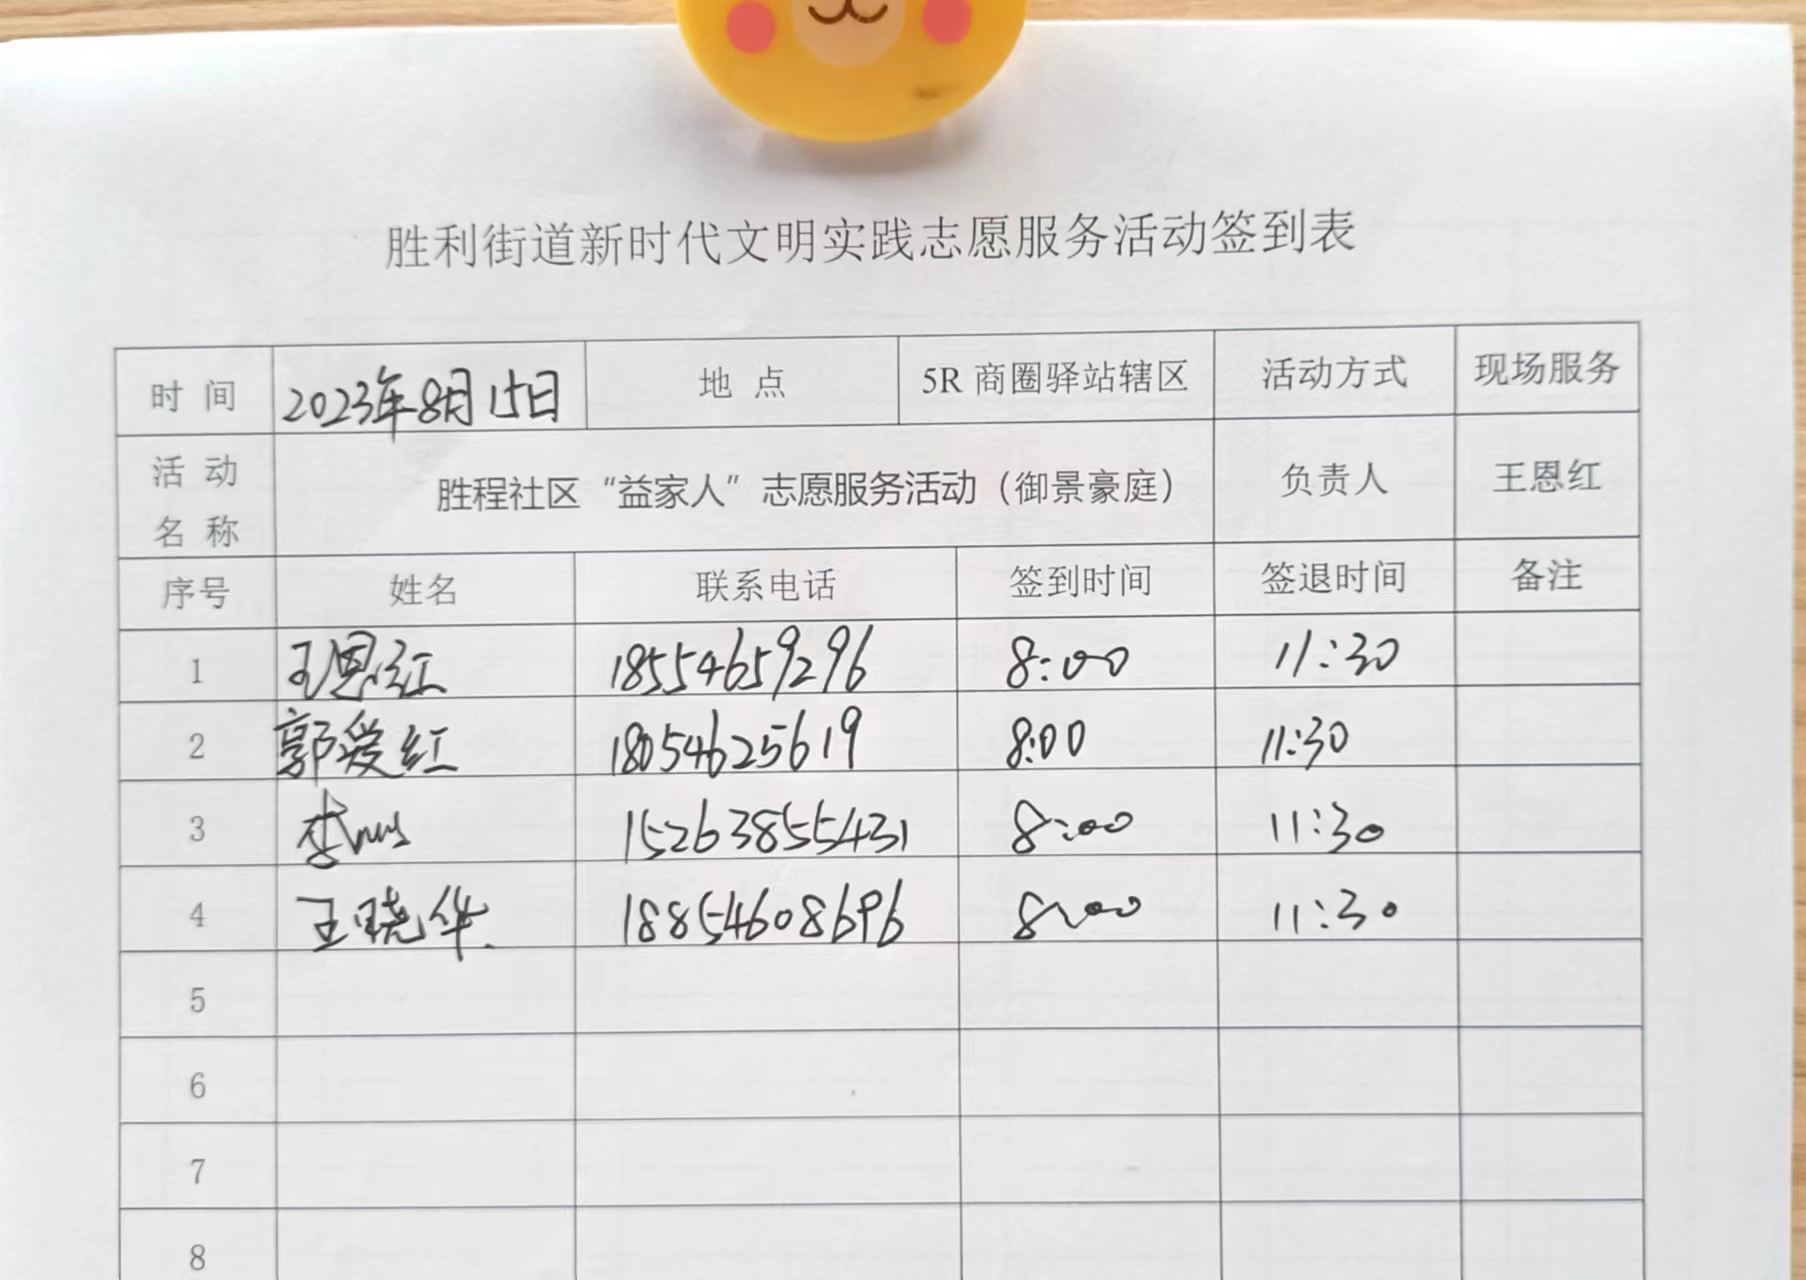 胜利街道新时代文明实践志愿服务活动签到表
时 间 2023年8月15日 地 点 5R 商圈驿站辖区 活动方式 现场服务
活 动
名 称 胜程社区“益家人”志愿服务活动（御景豪庭） 负责人 王恩红
序号 姓名 联系电话 签到时间 签退时间 备注
1 王恩红 18554659296 8:00 11:30
2 郭爱红 18054625619 8:00 11:30
3 李 15263855431 8:00 11:30
4 王晓华 18854608696 8:00 11:30
5
6
7
8